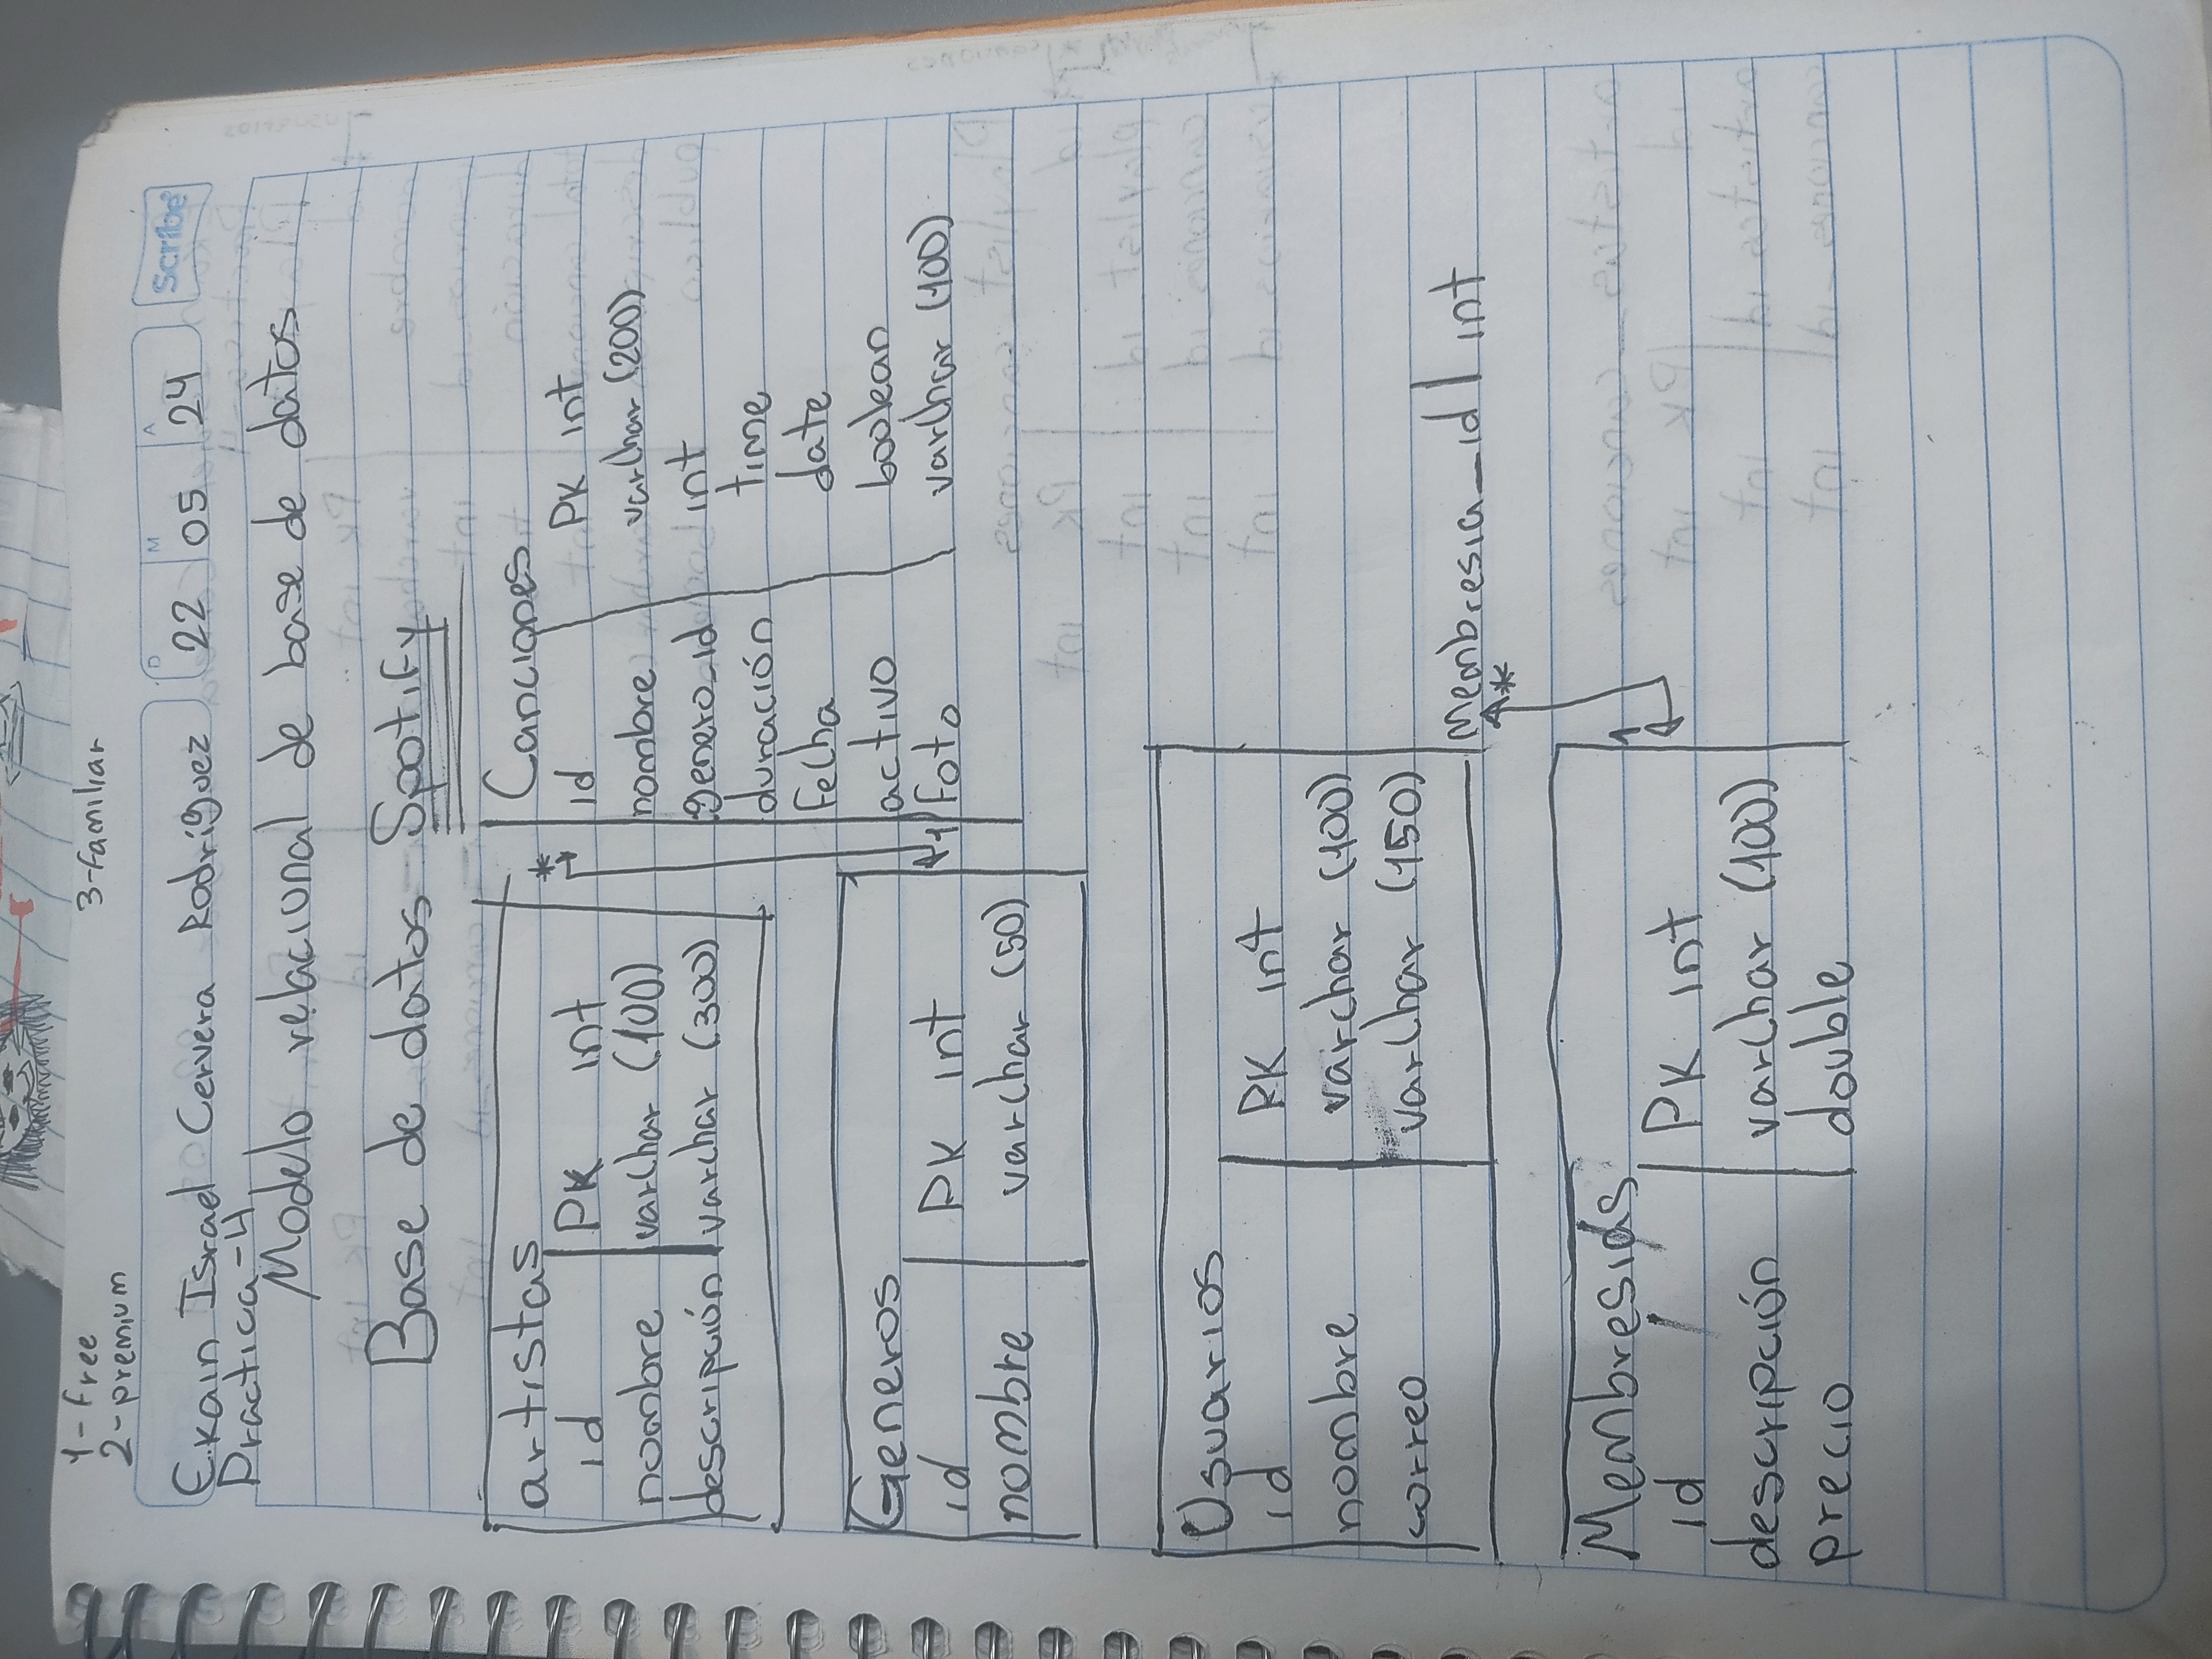 1-free
2-premium
3-familiar
Ekain Israel Cervera Rodríguez
D 22 M 05 A 24
Scribe
Práctica-4
Modelo relacional de base de datos
Base de datos Spotify
artistas
id PK int
nombre varchar (100)
descripción varchar (300)
*
Canciones
id PK int
nombre varchar (200)
genero_id int
duración time
fecha date
activo boolean
foto varchar (100)
Generos
id PK int
1
nombre varchar (50)
Usuarios
id PK int
nombre varchar (100)
correo varchar (150)
membresia_id int
*
Membresias
1
id PK int
descripción varchar (100)
precio double